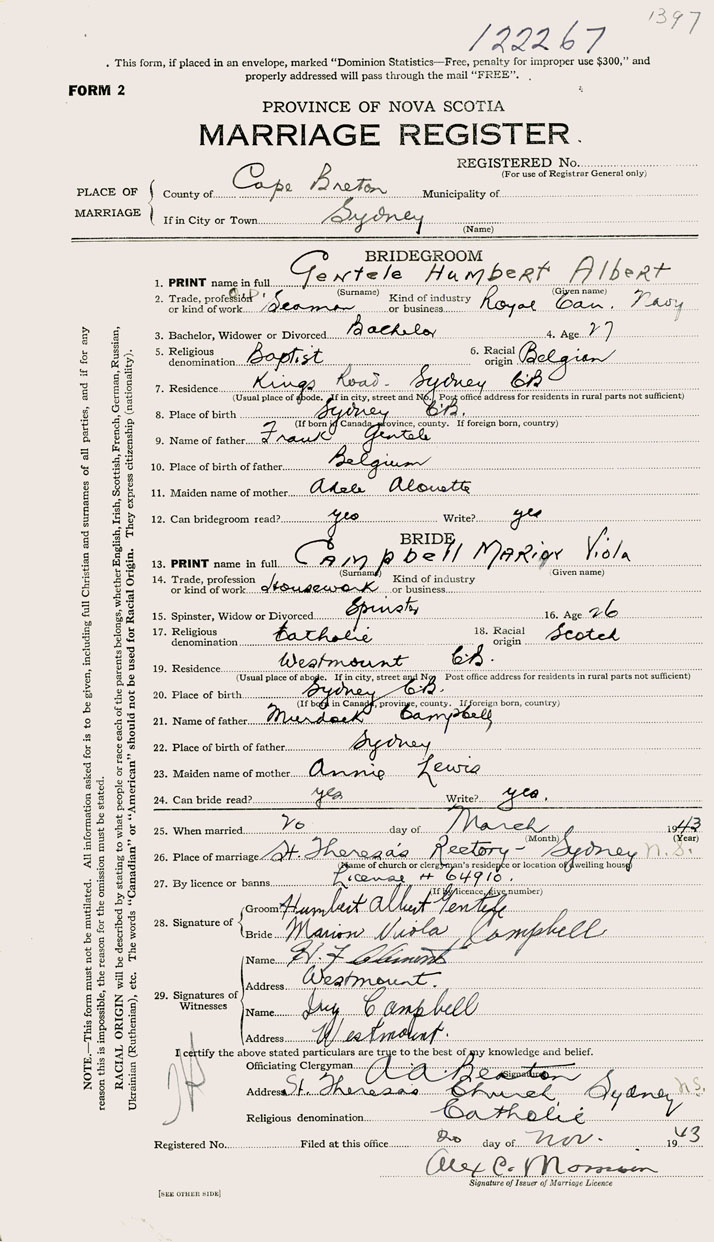 1397
122267
. This form, if placed in an envelope, marked "Dominion Statistics—Free, penalty for improper use $300," and
properly addressed will pass through the mail "FREE".
FORM 2
PROVINCE OF NOVA SCOTIA
MARRIAGE REGISTER
REGISTERED No.
(For use of Registrar General only)
PLACE OF MARRIAGE
County of Cape Breton Municipality of
If in City or Town Sydney
(Name)
BRIDEGROOM
1. PRINT name in full Gentele Humbert Albert
(Surname) (Given name)
2. Trade, profession or kind of work Seaman Kind of industry or business Royal Can. Navy
3. Bachelor, Widower or Divorced Bachelor 4. Age 27
5. Religious denomination Baptist 6. Racial origin Belgian
7. Residence Kings Road. Sydney CB
(Usual place of abode. If in city, street and No. Post office address for residents in rural parts not sufficient)
8. Place of birth Sydney CB.
(If born in Canada, province, county. If foreign born, country)
9. Name of father Frank Gentele
10. Place of birth of father Belgium
11. Maiden name of mother Adele Alouette
12. Can bridegroom read? yes Write? yes
BRIDE
13. PRINT name in full Campbell Marion Viola
(Surname) (Given name)
14. Trade, profession or kind of work Housework Kind of industry or business
15. Spinster, Widow or Divorced Spinster 16. Age 26
17. Religious denomination Catholic 18. Racial origin Scotch
19. Residence Westmount CB.
(Usual place of abode. If in city, street and No. Post office address for residents in rural parts not sufficient)
20. Place of birth Sydney CB.
(If born in Canada, province, county. If foreign born, country)
21. Name of father Murdock Campbell
22. Place of birth of father Sydney
23. Maiden name of mother Annie Lewis
24. Can bride read? yes Write? yes.
25. When married 20 day of March 1943
(Month) (Year)
26. Place of marriage St. Theresa's Rectory - Sydney N.S.
(Name of church or clergyman's residence or location of dwelling house)
27. By licence or banns License # 64910.
(If by licence, give number)
28. Signature of
Groom Humbert Albert Gentele
Bride Marion Viola Campbell
29. Signatures of Witnesses
Name H. F.
Address Westmount.
Name Campbell
Address Westmount.
I certify the above stated particulars are true to the best of my knowledge and belief.
Officiating Clergyman A. A. Beaton
(Signature)
Address St. Theresa's Church Sydney N.S.
Religious denomination Catholic
Registered No. Filed at this office 20 day of Nov. 1943
Alex C. Morrison
Signature of Issuer of Marriage Licence
[SEE OTHER SIDE]
NOTE.—This form must not be mutilated. All information asked for is to be given, including full Christian and surnames of all parties, and if for any
reason this is impossible, the reason for the omission must be stated.
RACIAL ORIGIN will be described by stating to what people or race each of the parents belongs, whether English, Irish, Scottish, French, German, Russian,
Ukrainian (Ruthenian), etc. The words "Canadian" or "American" should not be used for Racial Origin. They express citizenship (nationality).